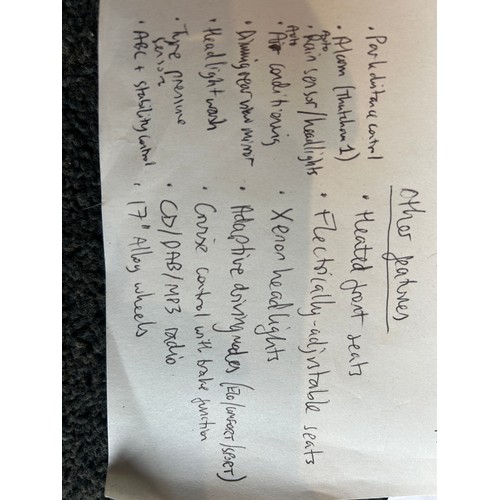 Other features
• Heated front seats
• Electrically-adjustable seats
• Xenon headlights
• Adaptive driving modes (ECO/COMFORT/SPORT)
• Cruise control with brake function
• CD/DAB/MP3 radio
• 17" Alloy wheels
• Park distance control
• Alarm (Thatcham 1)
• Auto Rain sensor/headlights
• Auto Air conditioning
• Dimming rear view mirror
• Headlight wash
• Tyre pressure sensors
• ABC + stability control